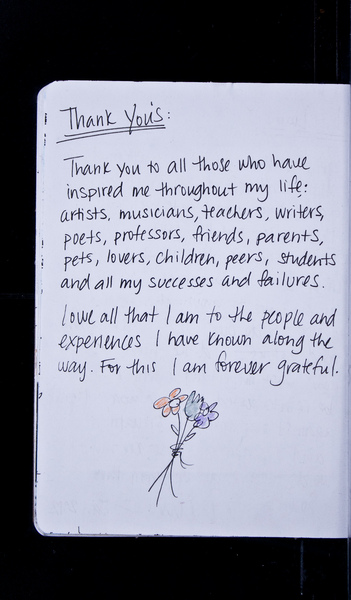 Thank You's:
Thank you to all those who have
inspired me throughout my life:
artists, musicians, teachers, writers,
poets, professors, friends, parents,
pets, lovers, children, peers, students
and all my successes and failures.
I owe all that I am to the people and
experiences I have known along the
way. For this I am forever grateful.